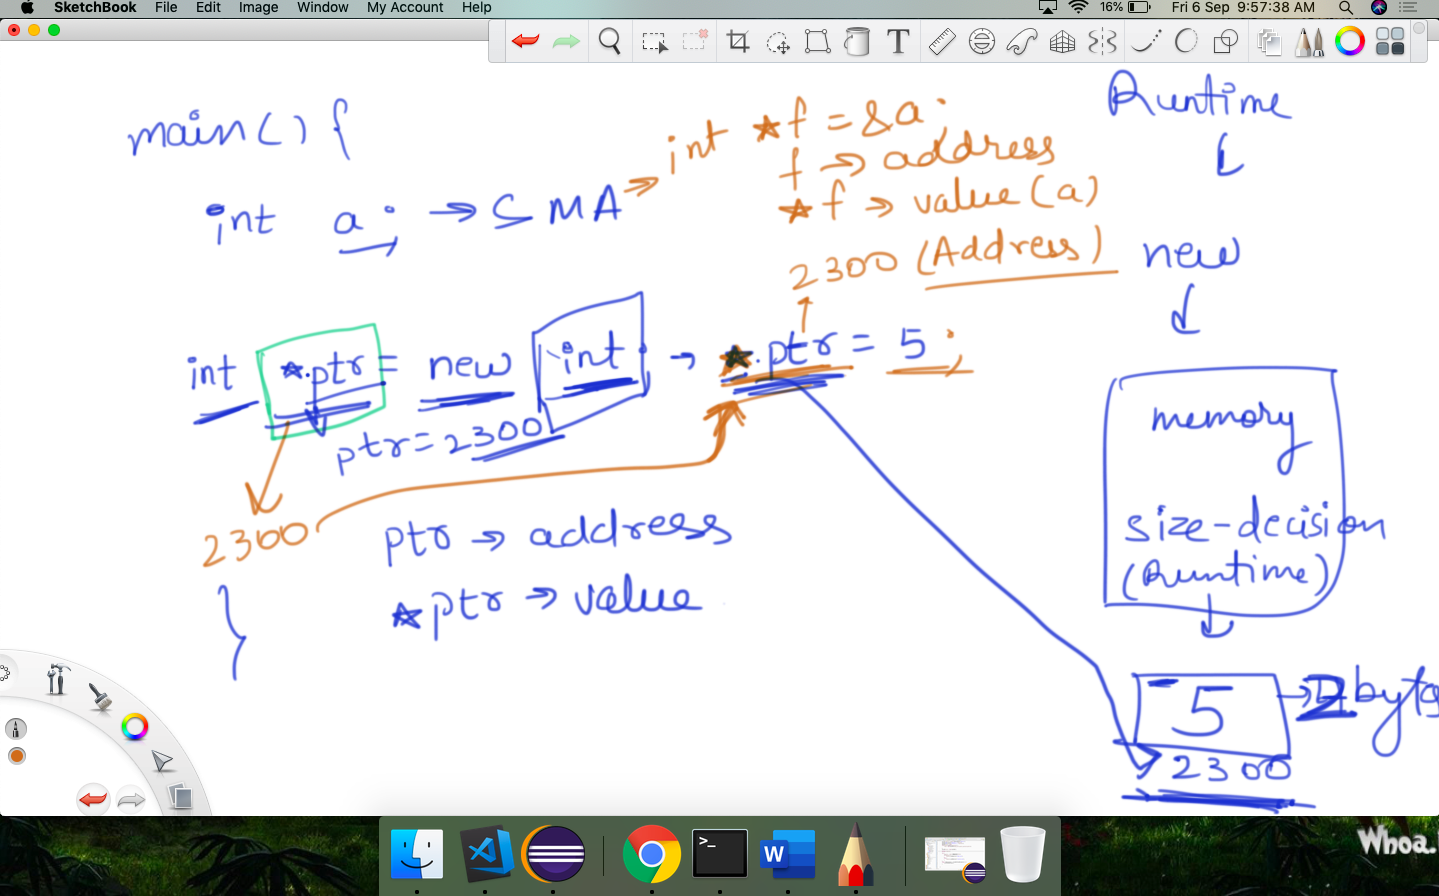 SketchBook File Edit Image Window My Account Help 16% Fri 6 Sep 9:57:38 AM
T
main() {
int a; → SMA → int *f = &a;
f → address
*f → value(a)
2300 (Address)
int *ptr = new int; → *ptr = 5;
ptr = 2300
2300
ptr → address
*ptr → value
}
Runtime
new
memory
size-decision
(Runtime)
5 → 2 bytes
2300
W
Whoa.